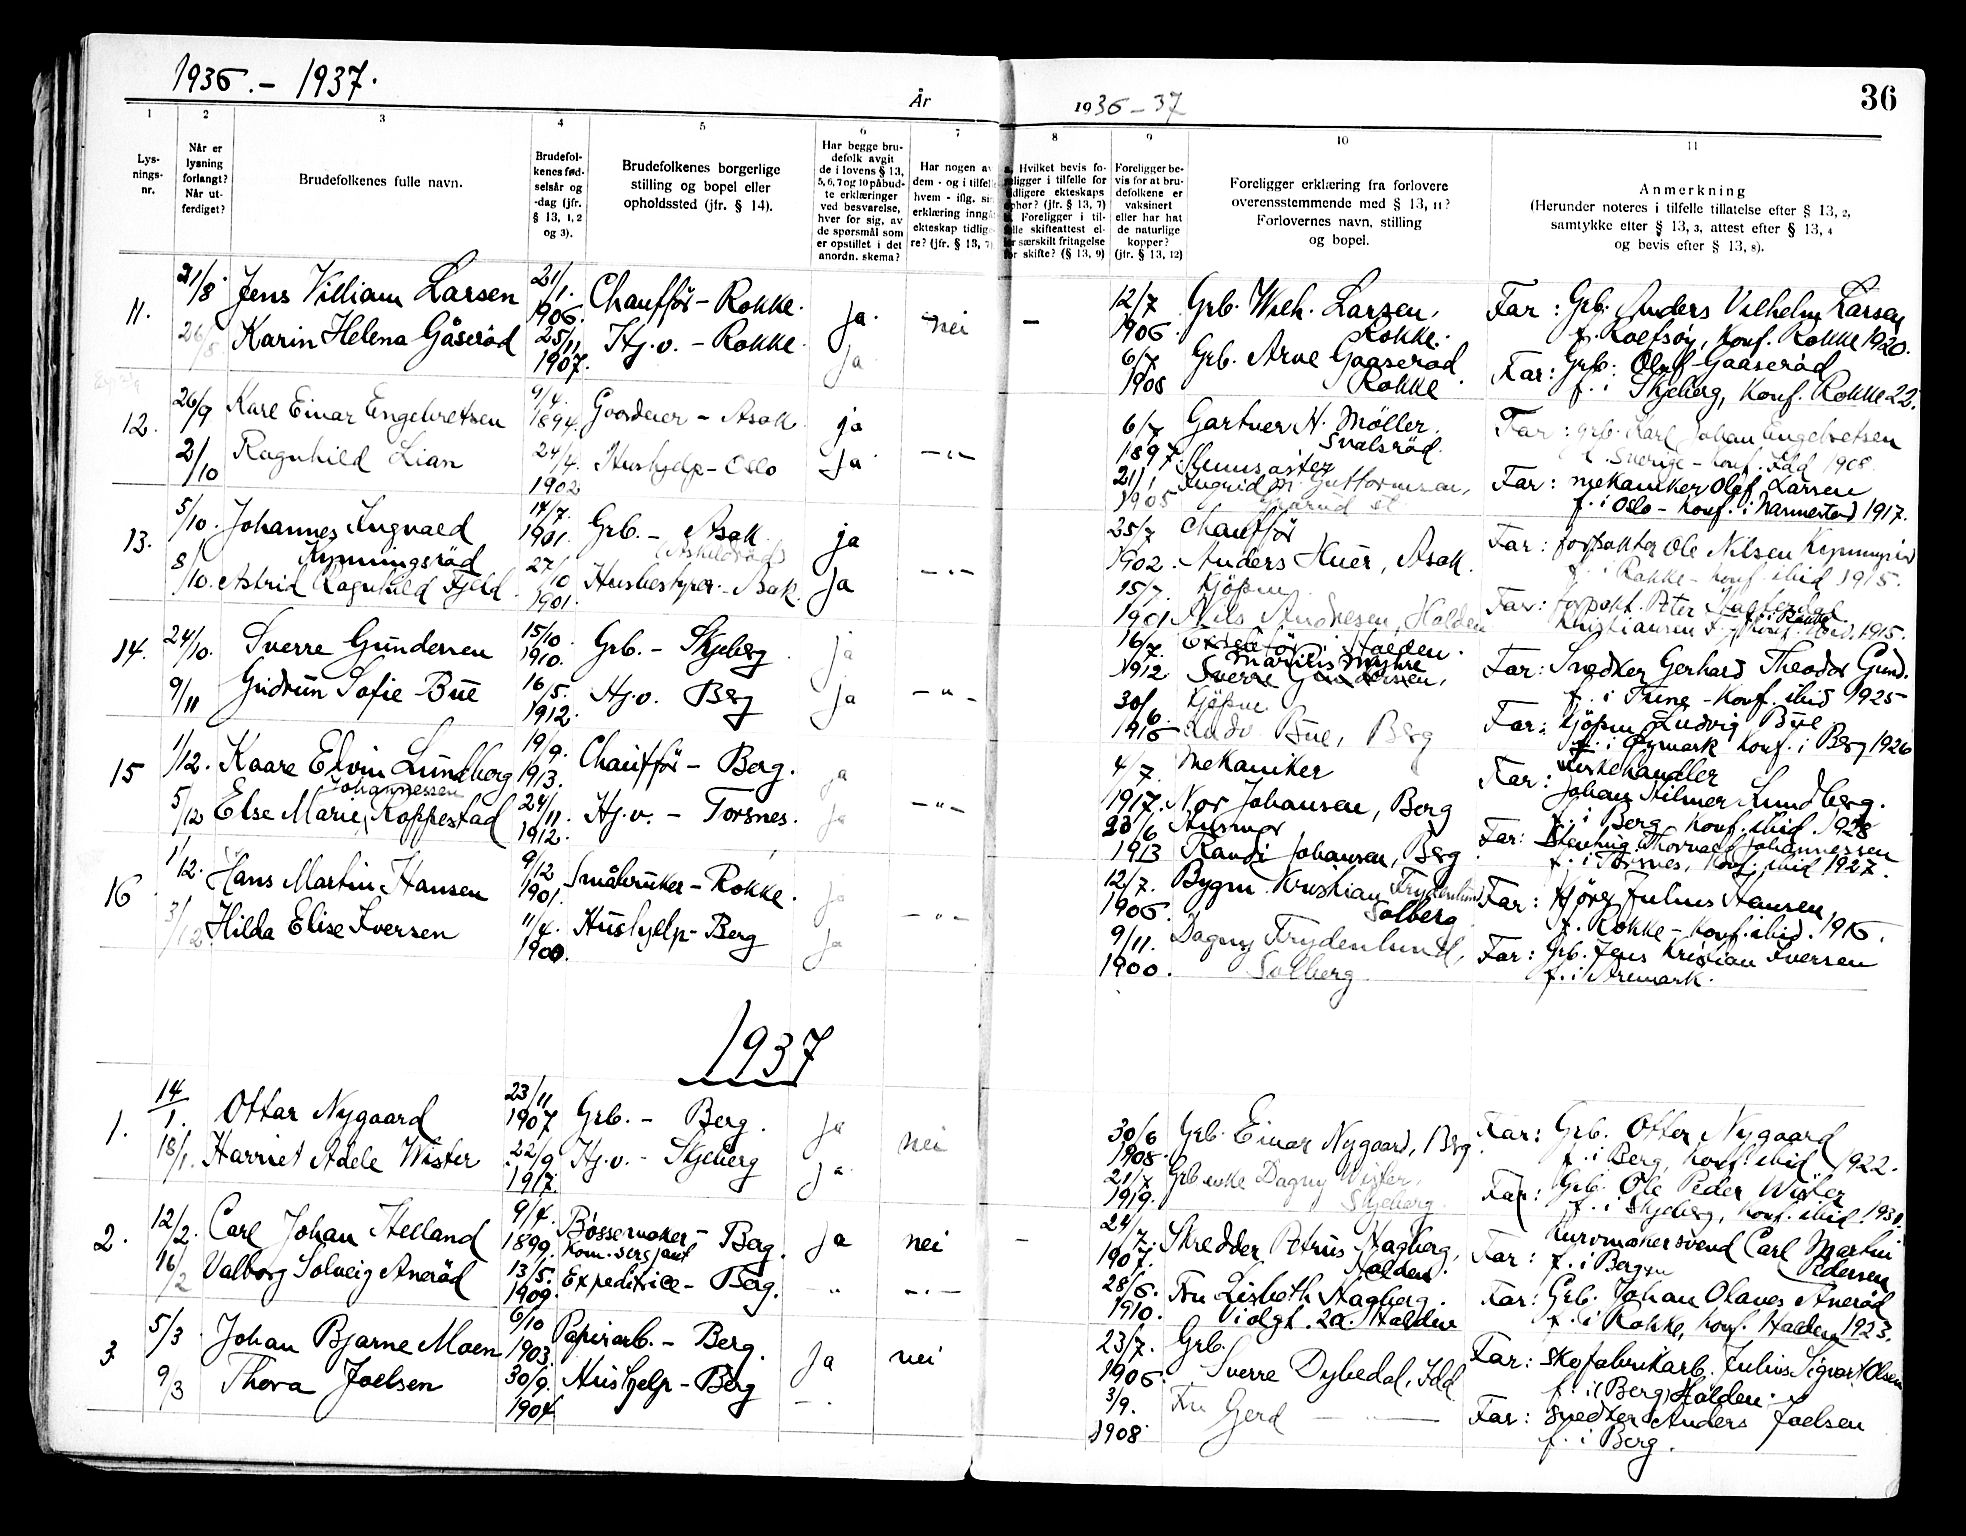 1936. - 1937.
År
1936-37
36
1
2
3
4
5
6
7
8
9
10
11
Lys-
nings-
nr.
Når er
lysning
forlangt?
Når ut-
ferdiget?
Brudefolkenes fulle navn.
Brudefol-
kenes fød-
selsår og
-dag (jfr.
§ 13, 1, 2
og 3).
Brudefolkenes borgerlige
stilling og bopel eller
opholdssted (jfr. § 14).
Har begge bru-
defolk avgit
de i lovens § 13,
5, 6, 7 og 10 påbud-
te erklæringer
ved besvarelse,
hver for sig, av
de spørsmål som
er opstillet i det
anordn. skema?
Har nogen av
dem - og i tilfelle
hvem - iflg. sin
erklæring inngått
ekteskap tidlige-
re? (jfr. § 13, 7)
a. Hvilket bevis fo-
religger i tilfelle for
tidligere ekteskaps
ophør? (jfr. § 13, 7)
Foreligger i til-
felle skifteattest el-
ler særskilt fritagelse
for skifte? (§ 13, 9)
Foreligger be-
vis for at bru-
defolkene er
vaksinert
eller har hat
de naturlige
kopper?
(jfr. § 13, 12)
Foreligger erklæring fra forlovere
overensstemmende med § 13, 11?
Forlovernes navn, stilling
og bopel.
Anmerkning
(Herunder noteres i tilfelle tillatelse efter § 13, 2,
samtykke efter § 13, 3, attest efter § 13, 4
og bevis efter § 13, 8).
11.
21/8
Jens Villiam Larsen
21/1.
1906.
Chauffør - Rokke.
ja.
nei
-
12/7
1906
Grb. Wilh. Larsen,
Rokke.
Far: Grb. Anders Vilhelm Larsen
f. Rolfsøy, Konf. Rokke 1920.
26/8
Karin Helena Gåserød
25/11
1907.
Hj.v. - Rokke.
ja
6/7
1908
Grb. Arne Gaaserød
Rokke.
Far: Grb. Olaf Gaaserød
f. i Skjeberg, Konf. Rokke 22.
12.
26/9
Kare Einar Engebretsen
9/4.
1894.
Gaardeier - Asak
ja
- " -
6/7
1897.
Gartner N. Möller.
Svalsrød.
Far: grb. Karl Johan Engebretsen
f. Sverige - Konf. Idd 1908.
2/10
Ragnhild Lian
24/4.
1902
Hushjelp - Oslo
ja
21/1
1905
Ingrid M. Guttormsen,
Far: mekaniker Olaf Larsen
f. i Oslo - Konf. i 1917.
13.
5/10.
Johannes Ingvald
Kynningsrød
17/7.
1901.
Grb. - Asak
ja
- " -
25/7
1902.
Chauffør
Anders Huer, Asak.
Far: forpakter Ole Nilsen Kynningsrød
f. i Rokke - Konf. ibid 1915.
8/10.
Astrid Ragnhild Fjeld
27/10
1901.
Husbestyrer. - Asak.
ja
15/7.
1901
Kjøpm.
Nils Andresen, Halden
Far: forpakt. Peter
Kristiansen Konf. ibid. 1915.
14.
24/10.
Sverre Gundersen
15/10.
1910.
Grb. - Skjeberg
ja
- " -
16/7.
1912
i Halden.
Marthis Myhre
Sverre Gundersen,
Far: Snedker Gerhard Theodor Gund.
f. i Tune - Konf. ibid 1925
9/11
Gudrun Sofie Bue
16/5.
1912.
Hj.v. Berg
ja
30/6.
1916
Kjøpm.
Ludv. Bue, Berg
Far: Kjøpm Ludvig Bue
f. i Øymark Konf. i Berg 1926
15
1/12.
Kaare Edvin Lundberg
19/9.
1913.
Chauffør - Berg.
ja
- " -
4/7.
1917.
Mekaniker
Nor Johansen, Berg
Far: Fiskehandler
Johan Hilmer Lundberg.
f. i Berg, Konf. ibid. 1928
5/12
Johannessen
Else Marie Roppestad
24/11.
1912.
Hj.v. - Torsnes.
ja
23/6
1913
Husmor
Randi Johansen, Berg
Far: Stenhug. Thorvald Johannessen
f. i Torsnes, Konf. ibid 1927.
16
1/12.
Hans Martin Hansen
9/12
1901.
Småbruker - Rokke.
ja
- " -
12/7.
1906.
Bygm. Kristian Frydenlund
Solberg
Far: Kjørek. Julius Hansen,
f. Rokke - Konf. ibid. 1916.
3/12
Hilda Elise Iversen
11/4.
1900.
Hushjelp - Berg
ja
9/11.
1900.
Dagny Frydenlund,
Solberg.
Far: Grb. Jens Kristian Iversen
f. i Aremark.
1937
1.
14/1.
Ottar Nygaard
23/11
1907
Grb. - Berg.
ja
nei
30/6
1908.
Grb. Einar Nygaard, Berg
Far: Grb. Otter Nygaard
f. i Berg, Konf. ibid 1922.
18/1.
Harriet Adele Wister
22/9
1917.
Hj.v. - Skjeberg
ja
21/7
1919.
Grb enke Dagny Wister,
Skjeberg.
Far: Grb. Ole Peder Wister
f. i Skjeberg, Konf. ibid. 1931.
2.
12/2.
Carl Johan Helland
9/4.
1899.
Bøssemaker - Berg.
Kom. sergjant
ja
nei
-
24/7.
1907.
Skredder Petrus Hagberg,
Halden.
Far: Kurvmakersvend Carl Martin
Pedersen
f. i Bergen
16/2
Valborg Solveig Anerød
13/5.
1909.
Expeditrice - Berg.
"
- " -
28/6.
1910.
Fru Lisbeth Hagberg.
Violgt. 2a. Halden
Far: Grb. Johan Olaves Anerød
f. i Rokke, Konf. Halden 1923.
3
5/3.
Johan Bjarne Moen
6/10
1903.
Papirarb. - Berg.
ja
nei
23/7.
1906.
Grb.
Sverre Dybedal, Idd
Far: Skofabrikarb. Julius Sigvart Olsen
f. i (Berg) Halden.
9/3
Thora Joelsen
30/9.
1904
Hushjelp - Berg
-
3/9.
1908
Fru Gerd - -
Far: snedker Anders Joelsen
f. i Berg.